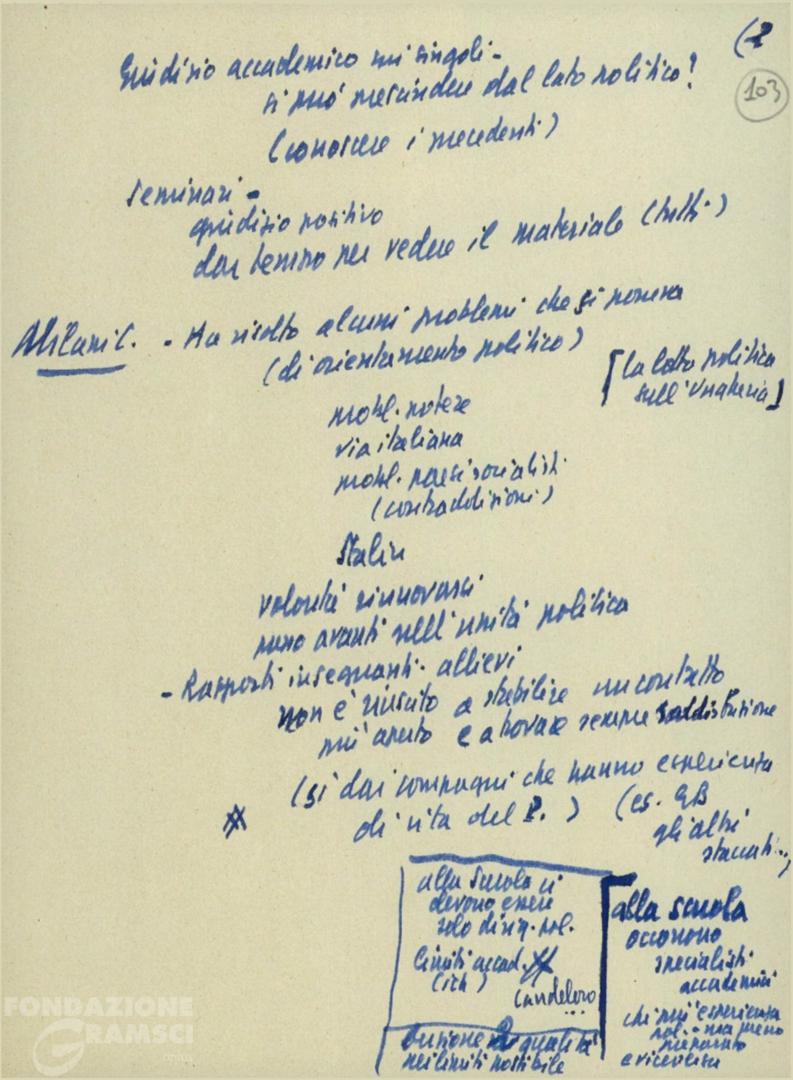 (2
103
Giudizio accademico sui singoli -
si può prescindere dal lato politico?
(conoscere i precedenti)
Seminari -
giudizio positivo
dar tempo per vedere il materiale (tutti)
Milani C. - Ha risolto alcuni problemi che si poneva
(di orientamento politico)
[la lotta politica
sull'Ungheria]
probl. potere
via italiana
probl. paesi socialisti
(contraddizioni)
Stalin
volontà rinnovarsi
passo avanti nell'unità politica
- Rapporti insegnanti-allievi
non è riuscito a stabilire un contatto
più aperto e a trovare sempre soddisfazione
(si dai compagni che hanno esperienza
di vita del P.) (es. GB
gli altri
staccati...)
alla scuola ci
devono essere
solo dirig. pol.
limiti accad.
Candeloro
...
nei limiti possibile
alla scuola
occorrono
specialisti
accademici
chi più esperienza
pol. - ma meno
preparato
e viceversa
FONDAZIONE
GRAMSCI